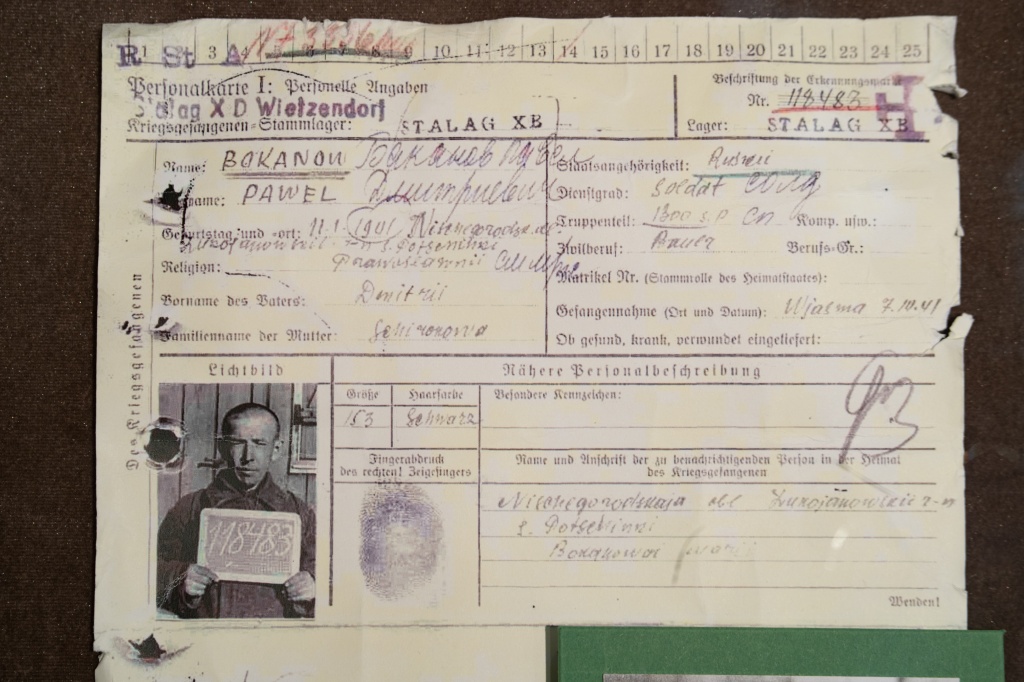 R St A
1 3 4 5 6 7 8 9 10 11 12 13 14 15 16 17 18 19 20 21 22 23 24 25
Personalkarte I: Personelle Angaben
Stalag X D Wietzendorf
Kriegsgefangenen-Stammlager: STALAG XB
Beschriftung der Erkennungsmarke
Nr. 118483
Lager: STALAG XB
Des Kriegsgefangenen
Name: BOKANOW Баканов Павел
name: PAWEL Дмитриевич
Geburtstag und -ort: 11.1.1901 Nischegorodskaja
Religion: Prawoslawnii
Vorname des Vaters: Dmitrii
Familienname der Mutter:
Staatsangehörigkeit:
Dienstgrad: Soldat
Truppenteil: 1300 s.p. Komp. usw.:
Zivilberuf: Bauer Berufs-Gr.:
Matrikel Nr. (Stammrolle des Heimatstaates):
Gefangennahme (Ort und Datum): Wjasma 7.10.41
Ob gesund, krank, verwundet eingeliefert:
Lichtbild
118483
Nähere Personalbeschreibung
Größe Haarfarbe Besondere Kennzeichen:
153 Schwarz
Fingerabdruck
des rechten! Zeigefingers
Name und Anschrift der zu benachrichtigenden Person in der Heimat
des Kriegsgefangenen
Nischegorodskaja obl Lukojanowskii r-n
s. Potschinki
Wenden!